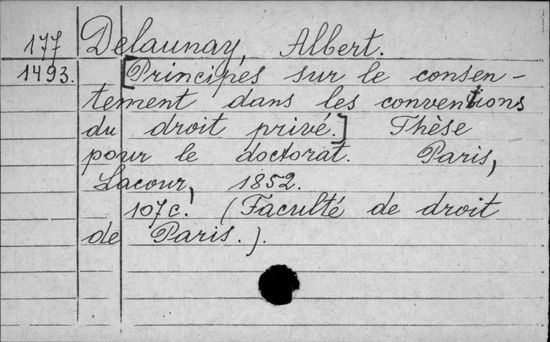 177 Delaunay, Albert.
1493. [Principes sur le consen-
tement dans les conventions
du droit privé.] Thèse
pour le doctorat. Paris,
Lacour, 1852.
107c. (Faculté de droit
de Paris.).